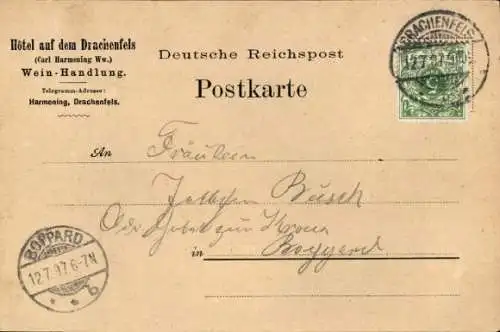 Hôtel auf dem Drachenfels
(Carl Harmening Ww.)
Wein-Handlung.
Telegramm-Adresse:
Harmening, Drachenfels.
Deutsche Reichspost
Postkarte
DRACHENFELS
12.7.97
5
An
Fräulein
Busch
zur Krone
in
Boppard
BOPPARD
12.7.97.6-7N
b